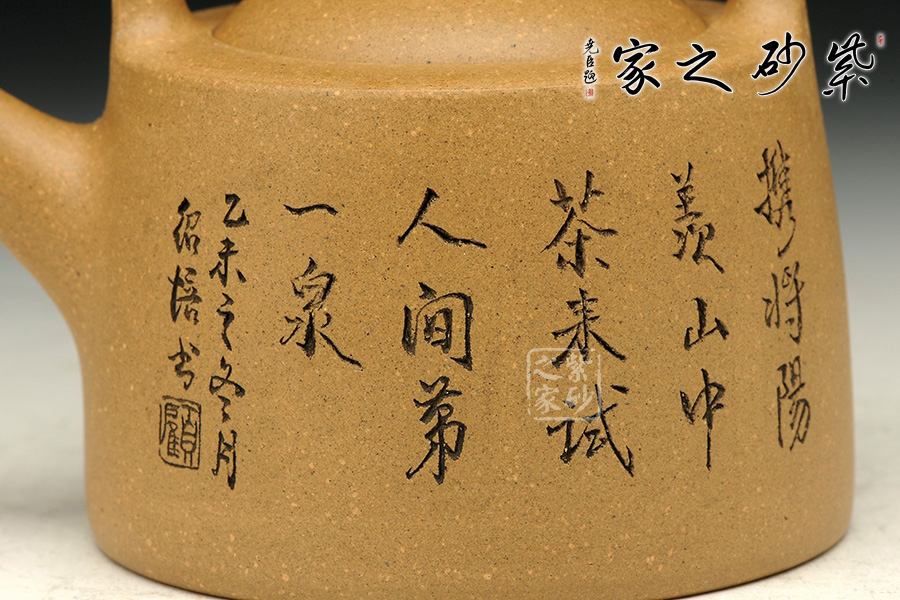 紫砂之家
尭臣題
携将陽
羡山中
茶来试
人间第
一泉
乙未之冬月
绍培书
顧
紫砂之家